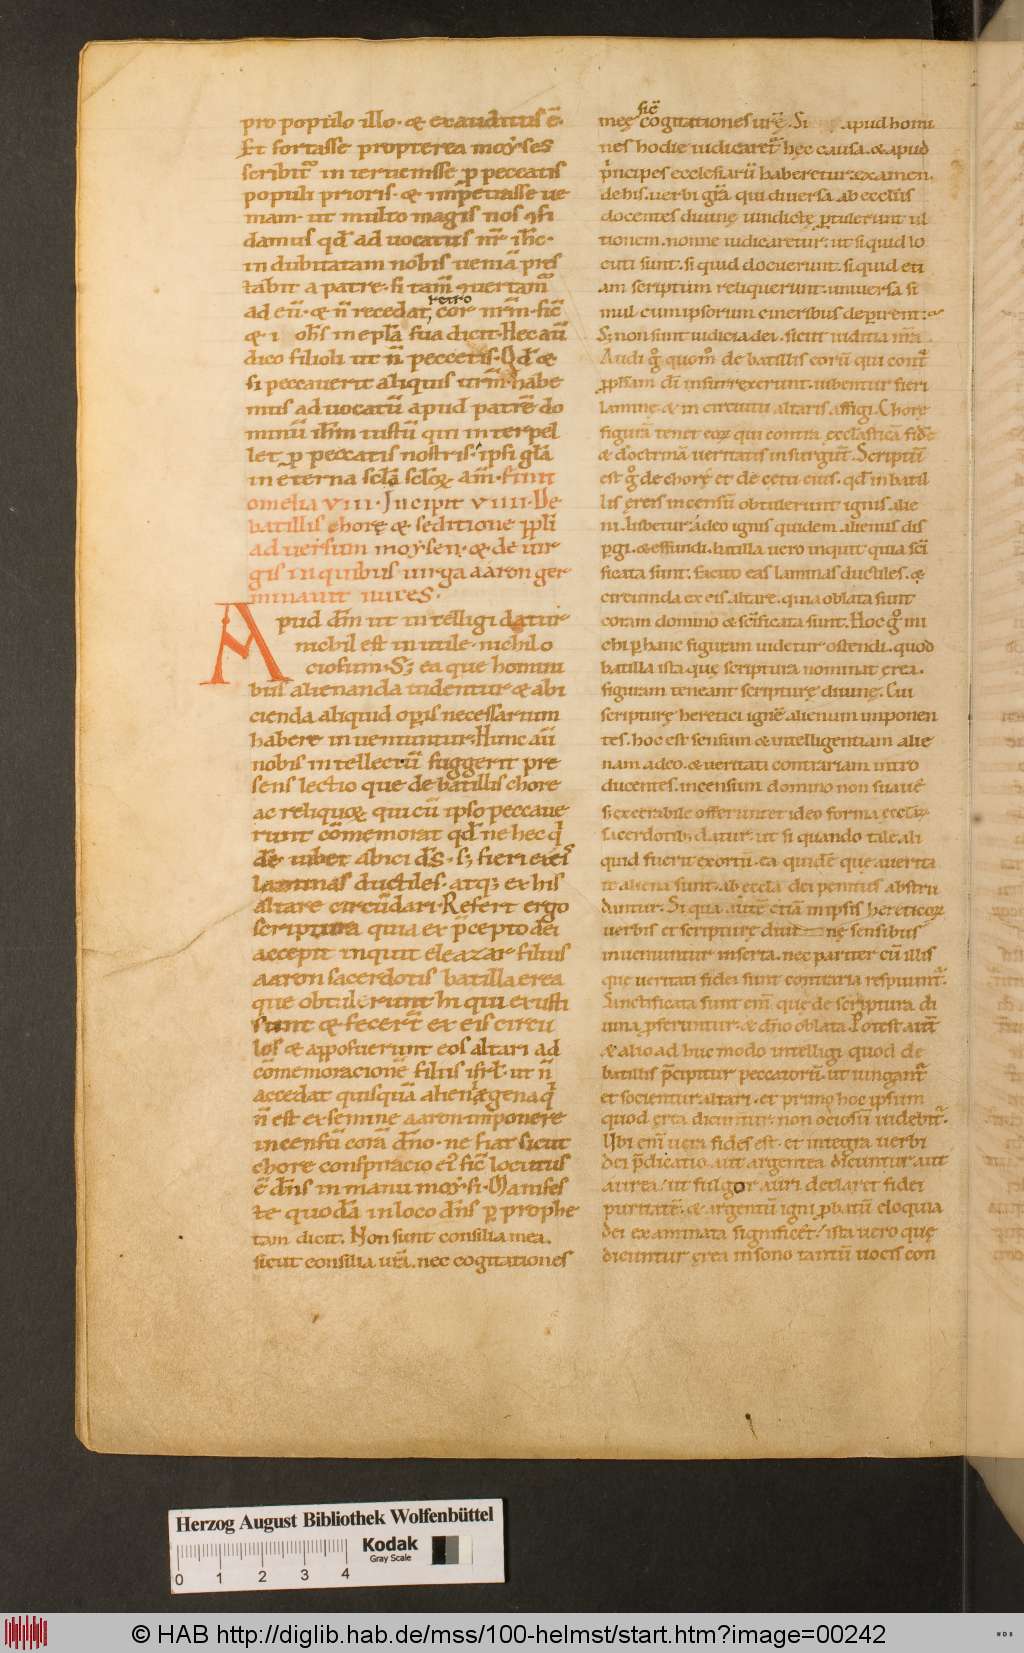 pro populo illo· & exauditus ē·
Et fortasse propterea moyses
scribit᷑ interuenisse ꝓ peccatis
populi prioris· & impetrasse ue
niam· ut multo magis nos ꝯfi
damus qd̄ ad uocatus nr̄ ihc·
indubitatam nobis ueniā pres
tabit a patre· si tam̄ ꝯuertam᷑
retro
ad eū· & n̄ recedat, cor nr̄m· sic̄
& i ohs in ep̄la sua dicit· Hec aū
dico filioli ut n̄ peccetis· Qd̄ &
si peccauerit aliquis ur̄m· habe
mus ad uocatū apud patrē do
minū ih̄m iustū qui interpel
let ꝓ peccatis nostris· ipsi gl̄a
in eterna scl̄a scl̄oꝝ am̄· finit
omelia VIII· Incipit VIIII· De
batillis chorę & seditione ppl̄i
aduersum moysen· & de uir
gis in quibus uirga aaron ger
minauit nuces·
Apud dm̄ ut intelligi datur
nichil est inutile· nichil o
ciosum· Sꝫ ea que homini
bus alienanda uidentur & abi
cienda aliquid oꝑis necessarium
habere inueniuntur· Hunc aū
nobis intellectū suggerit pre
sens lectio que de batillis chore
ac reliquoꝝ qui cū ipso peccaue
runt cōmemorat qd̄ ne hec q̇
dē iubet abici d̄s· sꝫ fieri ex ei᷒
laminas ductiles· atqꝫ ex his
altare circūdari· Refert ergo
scriptura quia ex p̄cepto dei
accepit inquit eleazar filius
aaron sacerdotis batilla erea
que obtulerunt hi qui exusti
sunt & fecer̄t ex eis circu
los & apposuerunt eos altari ad
cōmemoracionē filiis isrl̄· ut n̄
accedat quisquā alienigena q̇
n̄ est ex semine aaron imponere
incensū corā dn̄o· ne fiat sicut
chore conspiracio ei᷒ sic̄ locutus
ē dn̄s in manu moysi· Manifes
te quodā in loco dn̄s ꝑ prophe
tam dicit· Non sunt consilia mea·
sicut consilia ur̄a· nec cogitationes
sic̄
meę cogitationes urę̄· Si apud homi
nes hodie iudicaret᷑ hęc causa· & apud
p̄ncipes ecclesiarū haberetur examen·
de his· uerbi gr̄a· qui diuersa ab ecclīis
docentes diuinę uindictę ꝑtulerunt ul
tionem· nonne iudicaretur· ut si quid lo
cuti sunt· si quid docuerunt· si quid eti
am scriptum reliquerunt· uniuersa si
mul cum ipsorum cineribus deperirent·
Sꝫ non sunt iudicia dei· sicut iuditia nr̄a·
Audi g̊ quom̊ de batillis eorū qui cont᷑
pp̄lsam di insurrexerunt· iubentur fieri
laminę· & in circuitu altaris affigi· Chorę
figurā tenet eoꝝ qui contra ęcclasticā fidē
& doctrinā ueritatis insurgūt· Scriptū
est g̊ de chorę et de cętu eius· qd̄ in batil
lis ęreis incensū obtulerunt ignis alie
ni· Iubetur a deo ignis quidem alienus dis
pgi· & effundi· batilla uero inquit quia scī
ficata sunt· facito eas laminas ductiles· &
circumda ex eis altare· quia oblata sunt
coram domino & scīficata sunt· Hoc g̊ mi
chi ꝑ hanc figuram uidetur ostendi· quod
batilla ista quę scriptura nominat ęrea·
figuram teneant scripturę diuinę· Cui
scripturę heretici ignē alienum imponen
tes· hoc est sensum & intelligentiam alie
nam a deo· & ueritati contrariam intro
ducentes· incensum domino non suauē
sꝫ execrabile offerunt et ideo forma ecclīę
sacerdotibꝫ datur· ut si quando tale ali
quid fuerit exortū· ea quidē que a uerita
te aliena sunt· ab eccl̄a dei penitus abstru
dantur· Si qua autē etiā in ipsis hereticoꝝ
uerbis et scripturę diui nę sensibus
inueniuntur inserta· nec pariter cū illis
quę ueritati fidei sunt contraria respuunt᷑·
Sanctificata sunt enī que de scriptura di
uina ꝓferuntur· & dn̄o oblata· Potest aut̄
& alio ad huc modo intelligi quod de
batillis p̄cipitur peccatorū· ut iungant᷑
et socientur altari· et primo hoc ipsum
quod ęrea dicuntur· non ociosū uidebit᷑·
Ubi enī uera fides est· et integra uerbi
dei p̄dicatio· aut argentea dicuntur aut
aurea/ ut fulgor auri declaret fidei
puritatē· & argentū igni ꝓbatū eloquia
dei examinata significet/ ista uero quę
dicuntur ęrea in sono tantū uocis con
Herzog August Bibliothek Wolfenbüttel
Kodak
Gray Scale
0 1 2 3 4
© HAB http://diglib.hab.de/mss/100-helmst/start.htm?image=00242